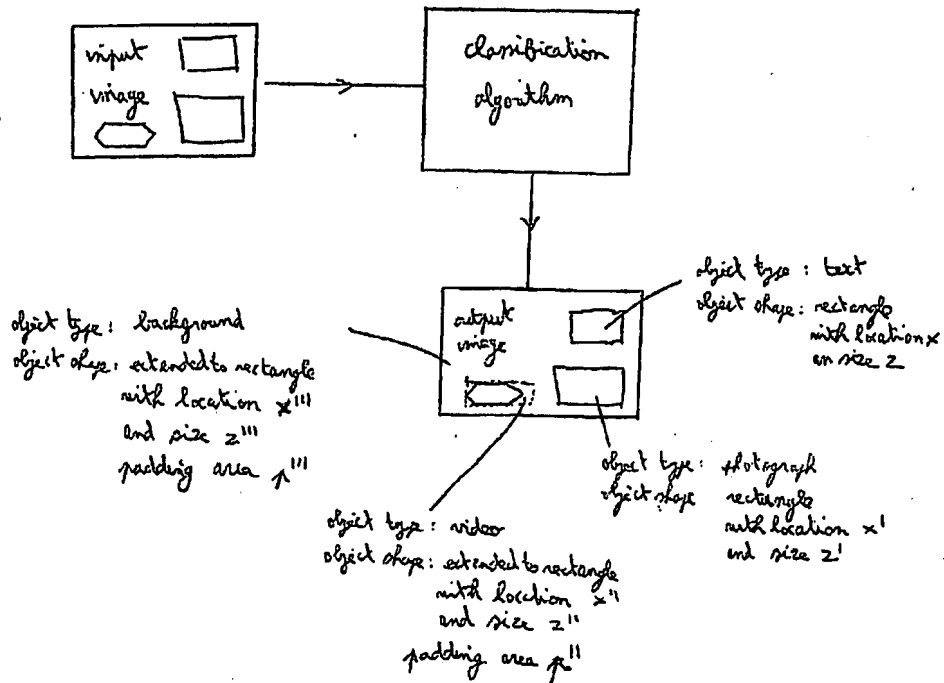 input
image
classification
algorithm
output
image
object type : text
object shape : rectangle
with location x
an size z
object type : background
object shape : extended to rectangle
with location x'''
and size z'''
padding area p'''
object type : photograph
object shape rectangle
with location x'
and size z'
object type : video
object shape : extended to rectangle
with location x''
and size z''
padding area p''